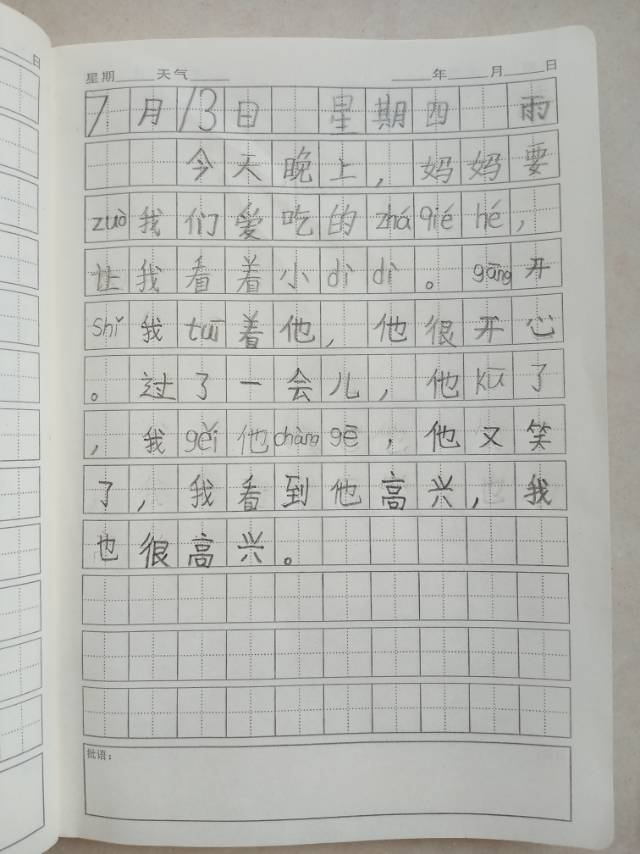 日
星期____天气____ ____年____月____日
7月13日 星期四 雨
今天晚上，妈妈要
zuò我们爱吃的zhá qié hé，
让我看着小dì dì。gāng开
shǐ我tuī着他，他很开心
。过了一会儿，他kū了
，我gěi他chàng gē，他又笑
了，我看到他高兴，我
也很高兴。
批语：